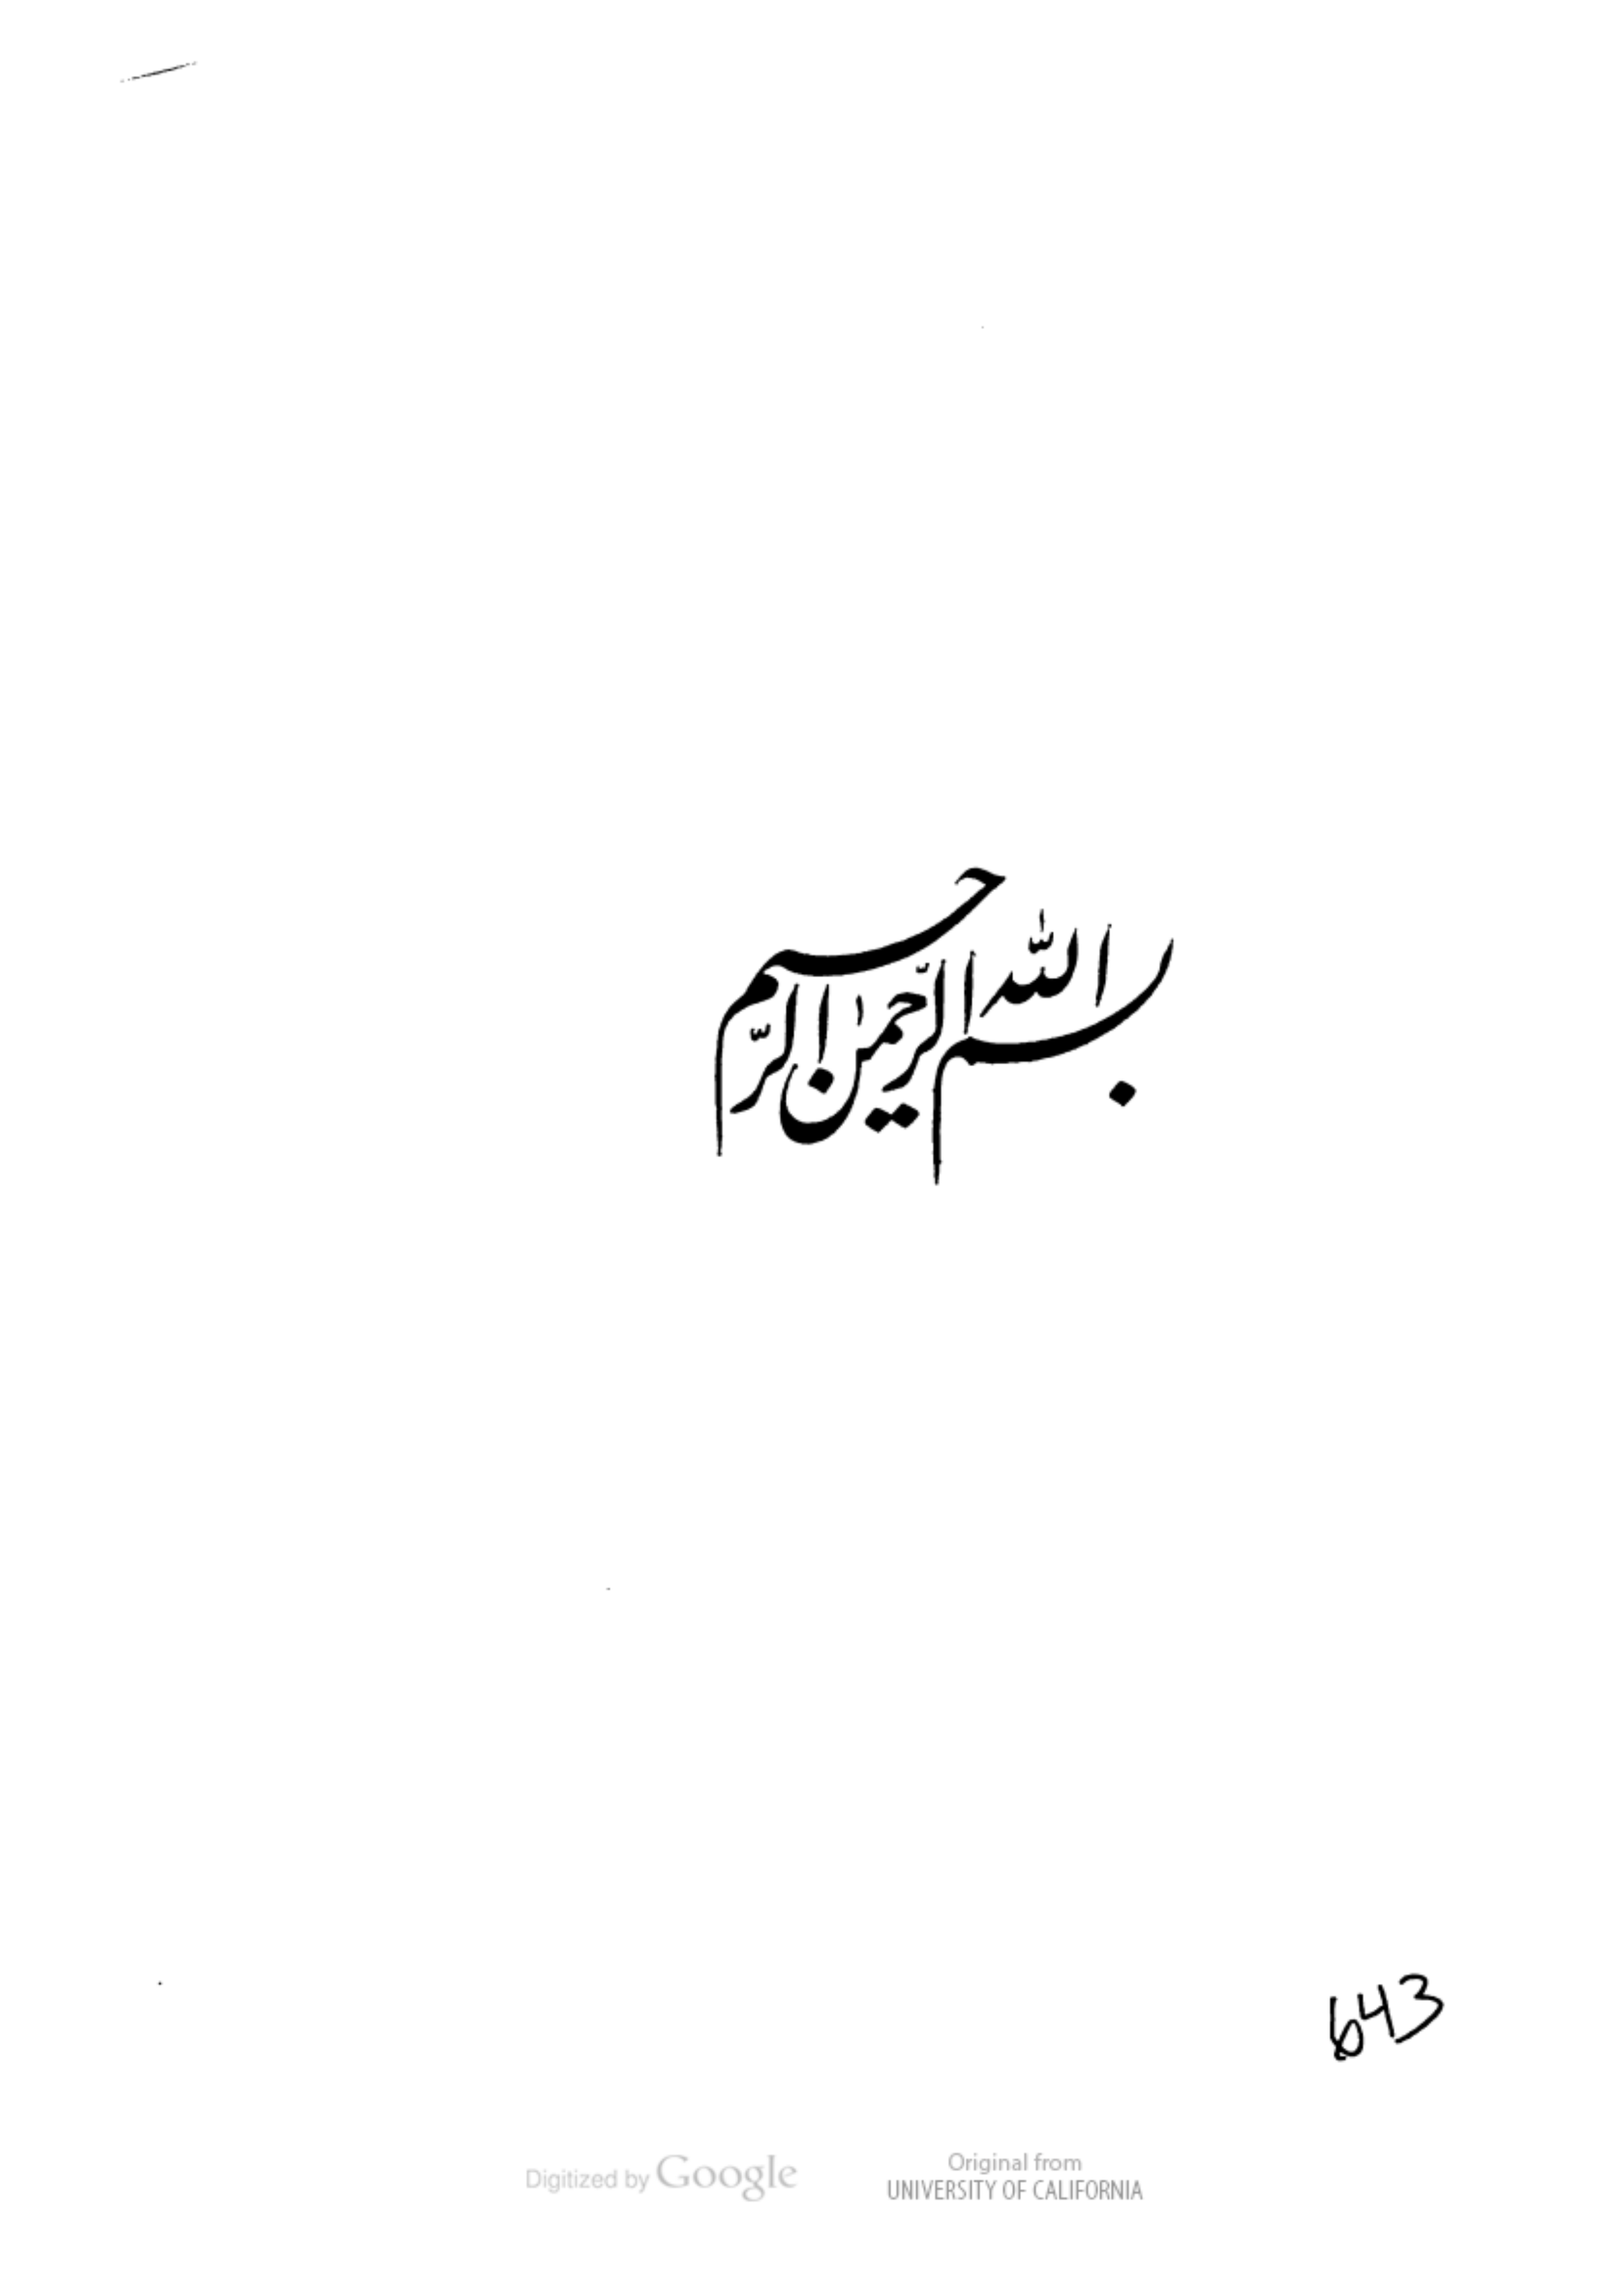 بسم الله الرّحمٰن الرّحیم
643
Digitized by Google
Original from
UNIVERSITY OF CALIFORNIA